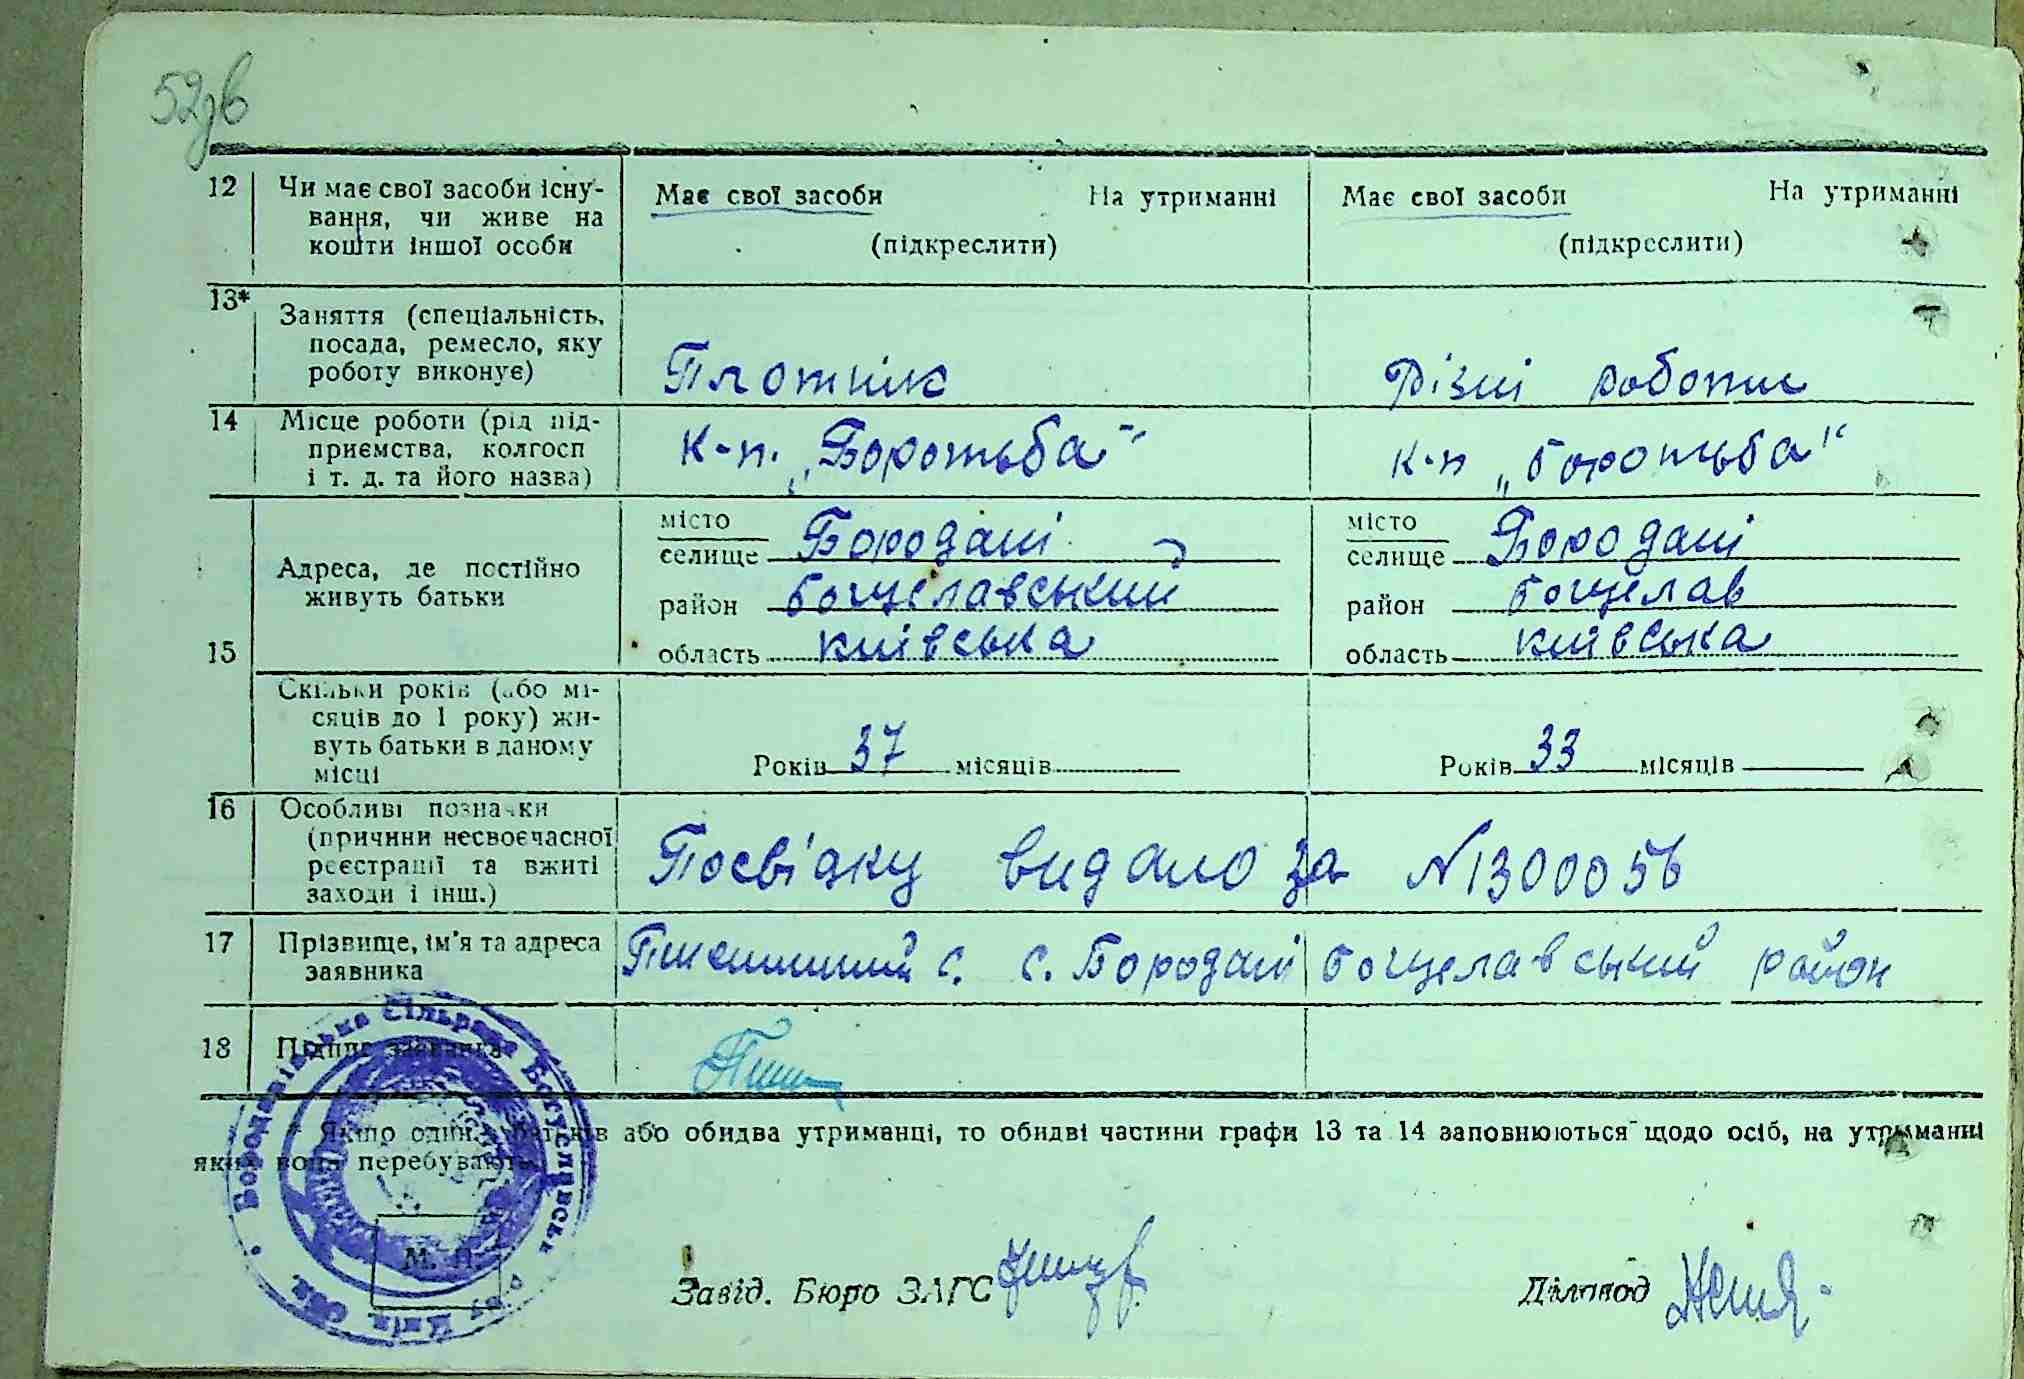 52зв
12 Чи має свої засоби існу-
вання, чи живе на
кошти іншої особи
Має свої засоби На утриманні
(підкреслити)
Має свої засоби На утриманні
(підкреслити)
13* Заняття (спеціальність,
посада, ремесло, яку
роботу виконує)
Плотнік
Різні роботи
14 Місце роботи (рід під-
приємства, колгосп
і т. д. та його назва)
к-п. „Боротьба"
к-п „боротьба"
15
Адреса, де постійно
живуть батьки
місто
селище Бородані
район богуславський
область київська
місто
селище Бородані
район богуслав
область київська
Скільки років (або мі-
сяців до 1 року) жи-
вуть батьки в даному
місці
Років 37 місяців
Років 33 місяців
16 Особливі позначки
(причини несвоєчасної
реєстрації та вжиті
заходи і інш.)
Посвідку видало за N1300056
17 Прізвище, ім'я та адреса
заявника
с. с. Бородані богуславський район
18 Підпис заявника
* Якщо один з батьків або обидва утриманці, то обидві частини графи 13 та 14 заповнюються щодо осіб, на утриманні
яких вони перебувають.
Бороданівська Сільрада Богуславськ. р-ну Київ. Обл.
М. П.
Завід. Бюро ЗАГС
Діловод